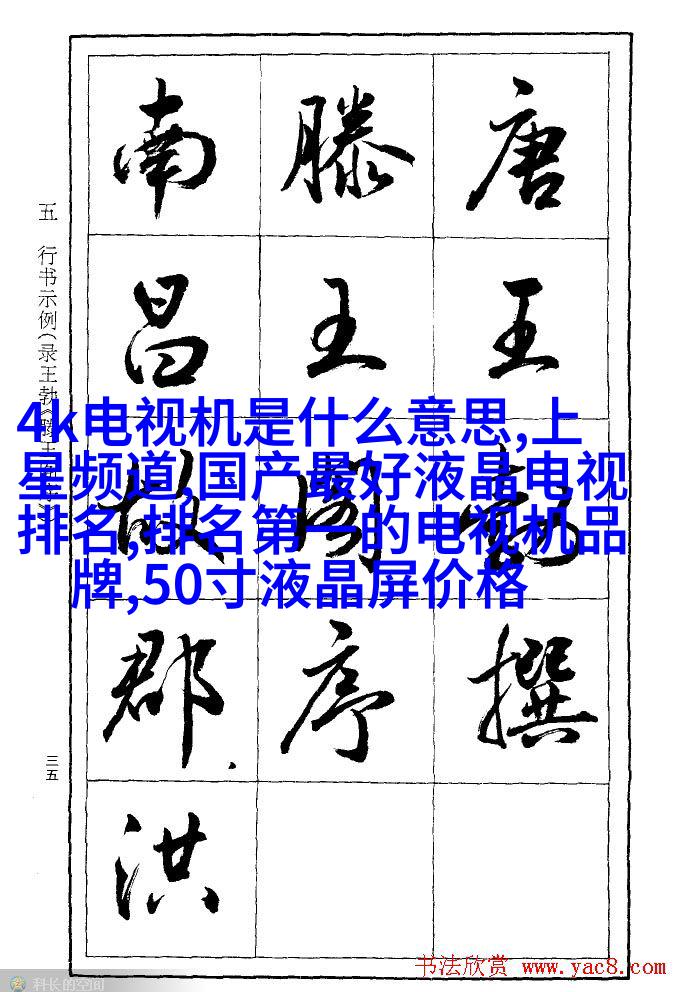 唐王勃撰
滕王阁序
南昌故郡洪
五 行书示例(录王勃《滕王阁序》)
三五
4k电视机是什么意思,上
星频道,国产最好液晶电视
排名,排名第一的电视机品
牌,50寸液晶屏价格
书法欣赏 www.yac8.com
科长的空间